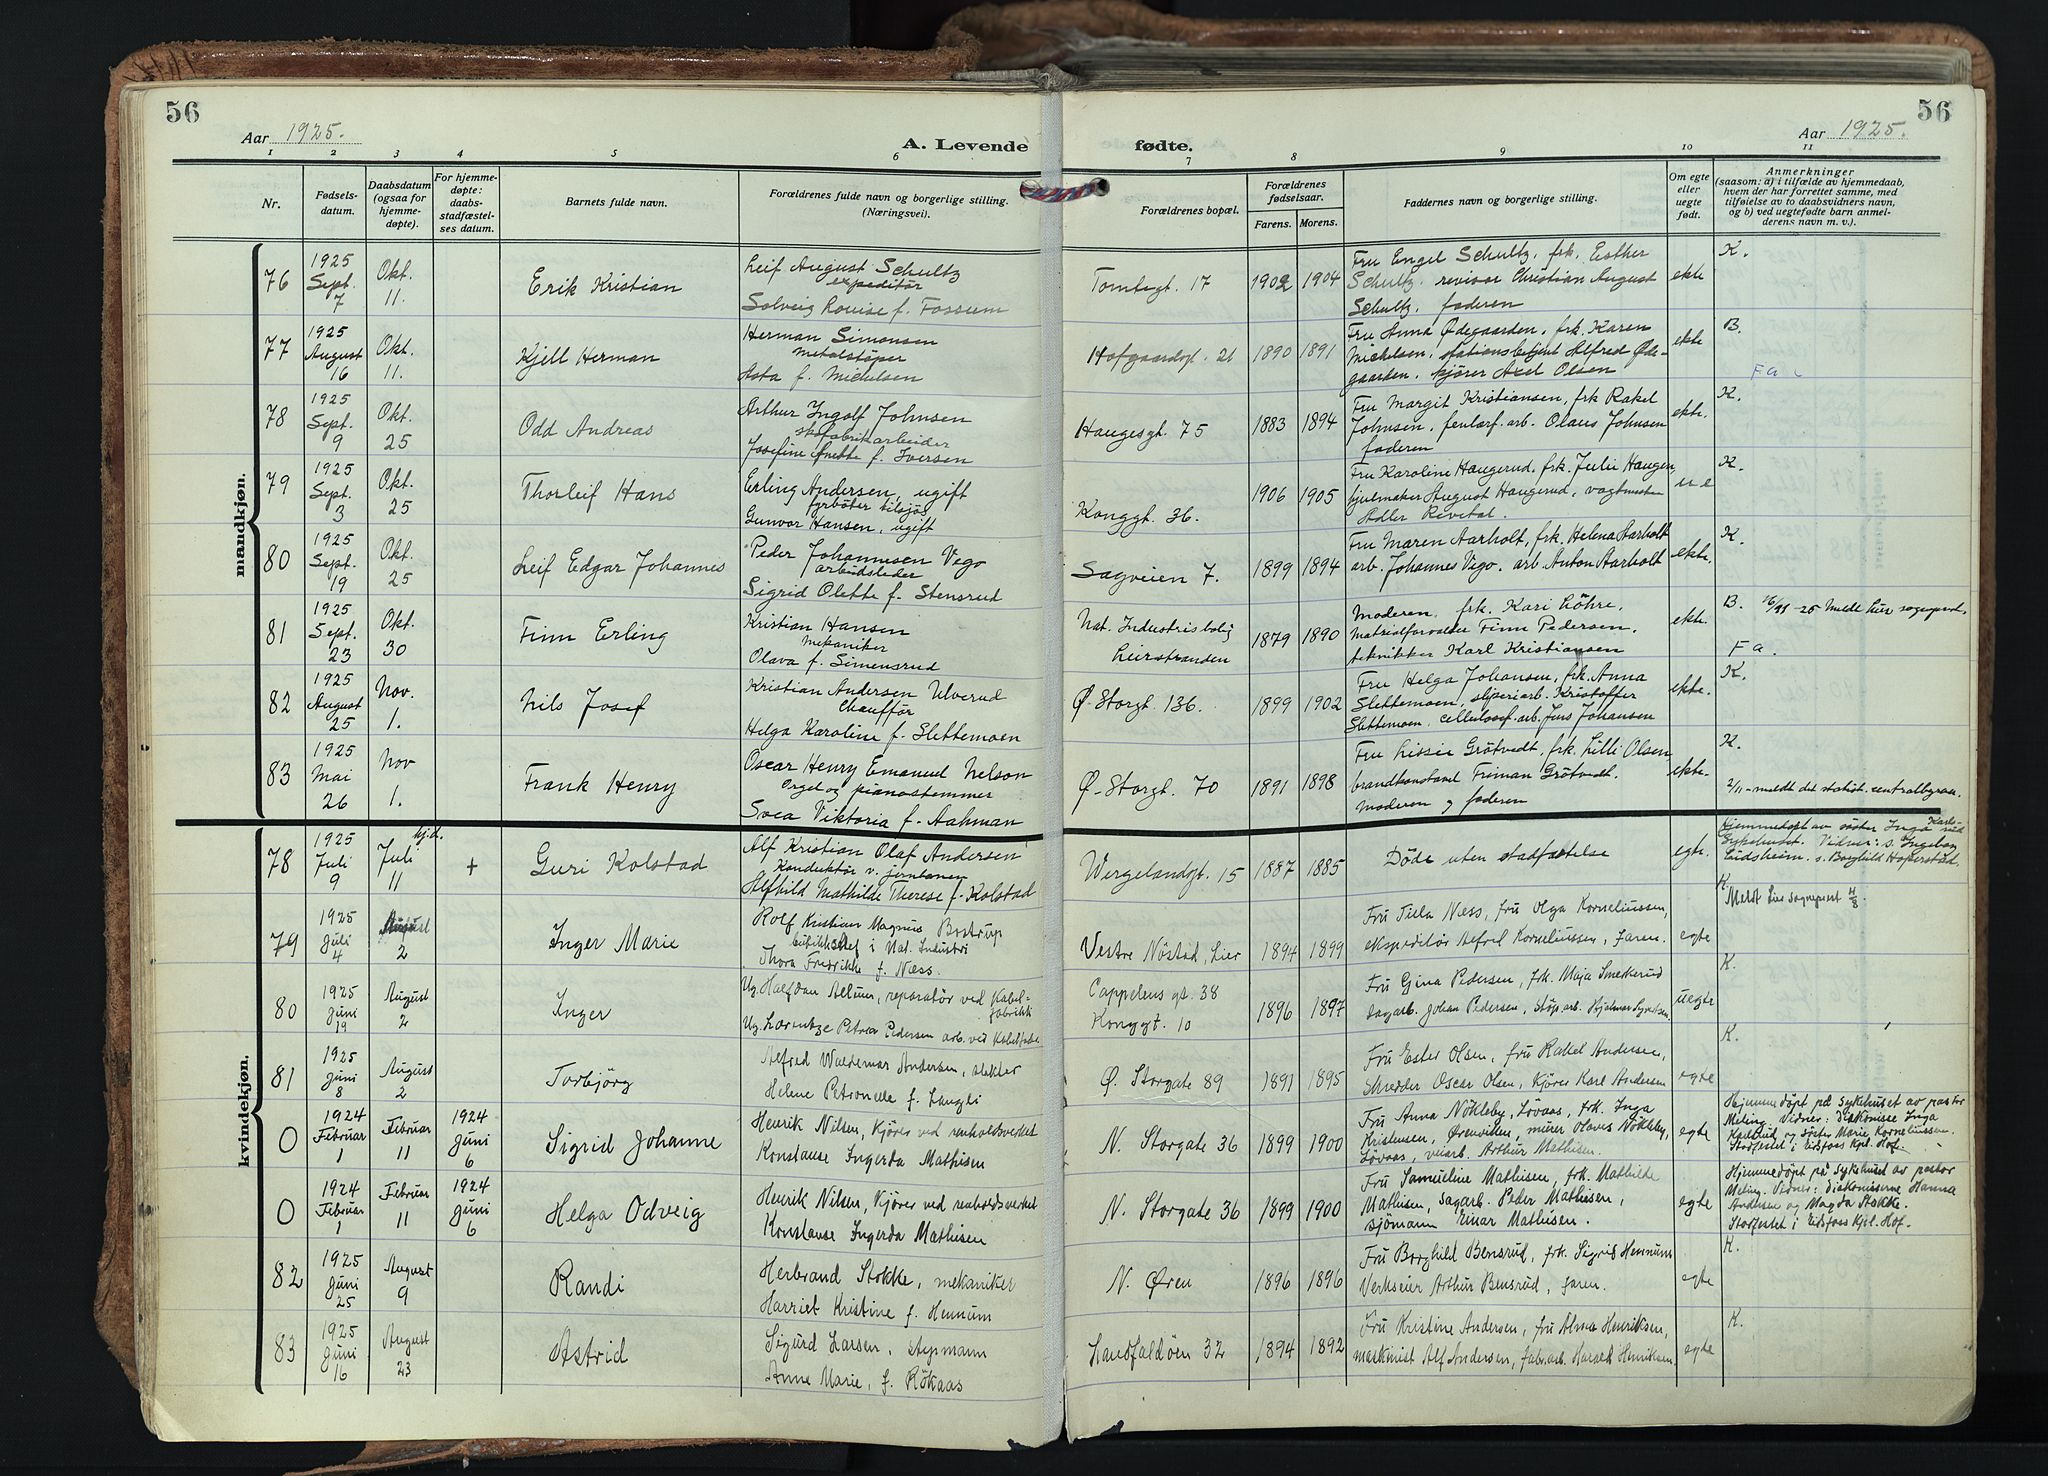 56
56
Aar 1925.
A. Levende
fødte.
Aar 1925.
1 2 3 4 5 6 7 8 9 10 11
Nr.
Fødsels-
datum.
Daabsdatum
(ogsaa for
hjemme-
døpte).
For hjemme-
døpte:
daabs-
stadfæstel-
ses datum.
Barnets fulde navn.
Forældrenes fulde navn og borgerlige stilling.
(Næringsvei).
Forældrenes bopæl.
Forældrenes
fødselsaar.
Farens. Morens.
Faddernes navn og borgerlige stilling.
Om egte
eller
uegte
født.
Anmerkninger
(saasom: a) i tilfælde av hjemmedaab,
hvem der har forrettet samme, med
tilføielse av to daabsvidners navn,
og b) ved uegtefødte barn anmel-
derens navn m. v.).
mandkjøn.
76
1925
Sept.
7
Okt.
11.
Erik Kristian
Leif August Schultz
expeditör
Solveig Louise f. Fossum
Tomtegt. 17
1902 1904
Fru Engel Schultz, frk. Esther
Schultz, revisor Christian August
Schultz, faderen
ekte
K.
77
1925
August
16
Okt.
11.
Kjell Herman
Herman Simonsen
Metalstöper
Asta f. Michelsen
Hofgaardgt. 21
1890 1891
Fru Anna Ødegaarden, frk. Karen
Michelsen, stationsbetjent Alfred Øde-
gaarden, kjörer Axel Olsen
ekte
B.
Fa
78
1925
Sept.
9
Okt.
25
Odd Andreas
Arthur Ingolf Johnsen
skofabrikarbeider
Josefine Anette f. Iversen
Haugesgt. 75
1883 1894
Fru Margit Kristiansen, frk Rakel
Johnsen, arb. Olaus Johnsen
faderen
ekte.
K.
79
1925
Sept.
3
Okt.
25
Thorleif Hans
Erling Andersen, ugift
fyrböter tilsjös
Gunvor Hansen, ugift
Konggt. 36.
1906 1905
Fru Karoline Haugerud, frk. Julie Haugen
hjulmaker August Haugerud, vagtmester
Adler
u e
K.
80
1925
Sept.
19
Okt.
25
Leif Edgar Johannes
Peder Johannesen Vego
arbeidsleder
Sigrid Olette f. Stensrud
Sagveien 7.
1899 1894
Fru Maren Aarholt, frk. Helena Aarholt
arb. Johannes Vego, arb Anton Aarholt
ekte.
K.
81
1925
Sept.
23
Okt.
30
Finn Erling
Kristian Hansen
Mekaniker
Olava f. Simensrud
Nat. Industris bolig
Leirstranden
1879 1890
Moderen, frk. Kari Löhre,
Matrialforvalter Finn Pedersen,
tekniker Karl Kristiansen
ekte.
B. 26/11-25 Meldt Lier sogneprest.
Fa.
82
1925
August
25
Nov.
1.
Nils Josef
Kristian Andersen Ulverud
Chaufför
Helga Karoline f. Slettemoen
Ø. Storgt. 136.
1899 1902
Fru Helga Johansen, frk. Anna
Slettemoen, sliperiarb. Kristoffer
Slettemoen, cellulosef. arb. Jens Johansen
ekte.
K.
83
1925
Mai
26
Nov
1.
Frank Henry
Oscar Henry Emanuel Nelson
Orgel og pianostemmer
Svea Viktoria f. Aahman
Ø. Storgt. 70
1891 1898
Fru Lissie Grötvedt, frk. Lilli Olsen
brandkonstabel Grötvedt.
Moderen og faderen
ekte.
K.
2/11 - meldt det statist. centralbyraa.
kvindekjøn.
78
1925
Juli
9
hj.d.
Juli
11
+
Guri Kolstad
Alf Kristian Olaf Andersen
Konduktör v. jernbanen
Alfhild Mathilde Therese f. Kolstad
Wergelandsgt. 15
1887 1885
Döde uten stadfæstelse
egte.
Hjemmedöpt av söster Inga Karlsrud
Sykehuset. Vidner: s. Ingeborg
Lidsheim. s. Borghild Hoperstad.
79
1925
Juli
4
August
2
Inger Marie
Rolf Kristian Magnus Bostrup
i Nat. Industri
Thora Fredrikke f. Næss.
Vestre Nöstad, Lier
1894 1899
Fru Tiela Næss, fru Olga Korneliussen,
ekspeditör Alfred Korneliussen, faren.
egte
K.
Meldt Lier sogneprest 4/8
80
1925
Juni
19
August
2
Inger
Ug. Halfdan Allum, reparatör ved Kabel-
fabrikk
Ug. Lorentze Petrea Pedersen arb. ved Kabelfabr.
Cappelens gt. 38
Konggt. 10
1896 1897
Fru Gina Pedersen, frk. Maja Smeskerud
sagarb. Johan Pedersen, Støp. arb. Hjalmar Syvertsen.
uegte
K.
81
1925
Juni
8
August
2
Torbjörg
Alfred Waldemar Andersen, slakter
Helene Petronelle f. Langli
Ø. Storgate 89
1891 1895
Fru Ester Olsen, fru Rakel Andersen,
Skredder Oscar Olsen, Kjörer Karl Andersen
egte
K.
0
1924
Februar
1
Februar
11
1924
Juni
6
Sigrid Johanne
Henrik Nilsen, Kjörer ved renholdsverket
Konstanse Ingerda Mathisen
N. Storgate 36
1899 1900
Fru Anna Nökleby, Lövaas, frk. Inga
Kristensen, Ørenveien, murer Olaves Nökleby,
Lövaas, veiarb. Arthur Mathisen.
egte
Hjemmedöpt på sykehuset av pastor
Meling. Vidner: Diakonisse Inga
Karlsrud og söster Marie Korneliussen.
Stadfestet i Eidsfoss Kpl. Hof.
0
1924
Februar
1
Februar
11
1924
Juni
6
Helga Odveig
Henrik Nilsen, Kjörer ved renholdsverket
Konstanse Ingerda Mathisen
N. Storgate 36
1899 1900
Fru Samueline Mathisen, frk. Mathilde
Mathisen, sagarb. Peder Mathisen,
sjömann Einar Mathisen.
egte
Hjemmedöpt på sykehuset av pastor
Meling. Vidner: diakonisserne Hanna
Andersen og Magda Stokke.
Stadfestet i Eidsfoss Kpl. Hof.
82
1925
Juni
25
August
9
Randi
Herbrand Stokke, mekaniker
Harriet Kristine f. Hennum
N. Øren
1896 1896
Fru Borghild Bensrud, frk. Sigrid Hennum
Verkseier Arthur Bensrud, faren.
egte
K.
83
1925
Juni
16
August
23
Astrid
Sigurd Larsen, styrmann
Anne Marie, f. Rökaas
Landfaldöen 32
1894 1892
Fru Kristine Andersen, fru Alma Henriksen,
maskinist Alf Andersen, fabr. arb. Harald Henriksen
egte
K.